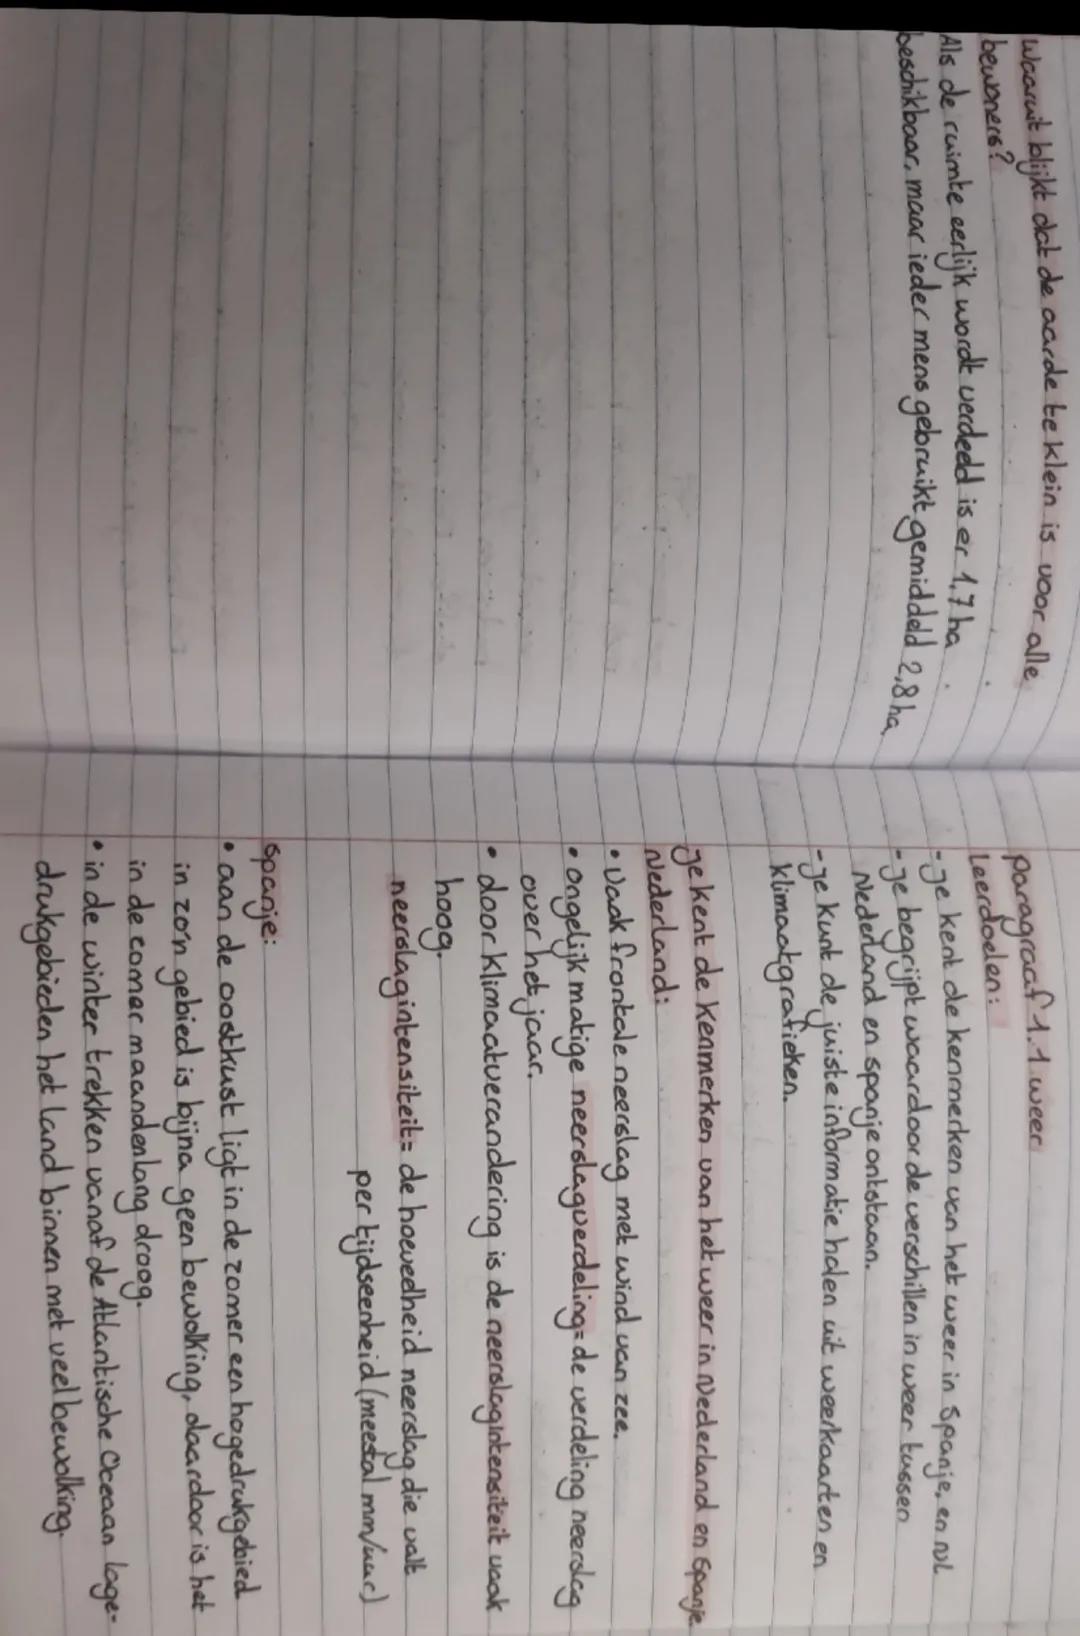 waaruit blijkt dat de aarde te klein is voor alle
bewoners?
Als de ruimte eerlijk wordt verdeeld is er 1,7 ha
beschikbaar, maar ieder mens gebruikt gemiddeld 2,8 ha
paragraaf 1.1 weer
Leerdoelen:
- je kent de kenmerken van het weer in Spanje, en NL
- je begrijpt waardoor de verschillen in weer tussen
Nederland en Spanje ontstaan.
- je kunt de juiste informatie halen uit weerkaarten en
klimaatgrafieken.
je kent de kenmerken van het weer in Nederland en Spanje
Nederland:
• Vaak frontale neerslag met wind van zee.
• ongelijkmatige neerslagverdeling = de verdeling neerslag
over het jaar.
• door klimaatverandering is de neerslagintensiteit vaak
hoog.
neerslagintensiteit = de hoeveelheid neerslag die valt
per tijdseenheid (meestal mm/uur)
Spanje:
• aan de oostkust ligt in de zomer een hogedrukgebied
in zo'n gebied is bijna geen bewolking, daardoor is het
in de zomer maandenlang droog.
• in de winter trekken vanaf de Atlantische Oceaan lage-
drukgebieden het land binnen met veel bewolking.